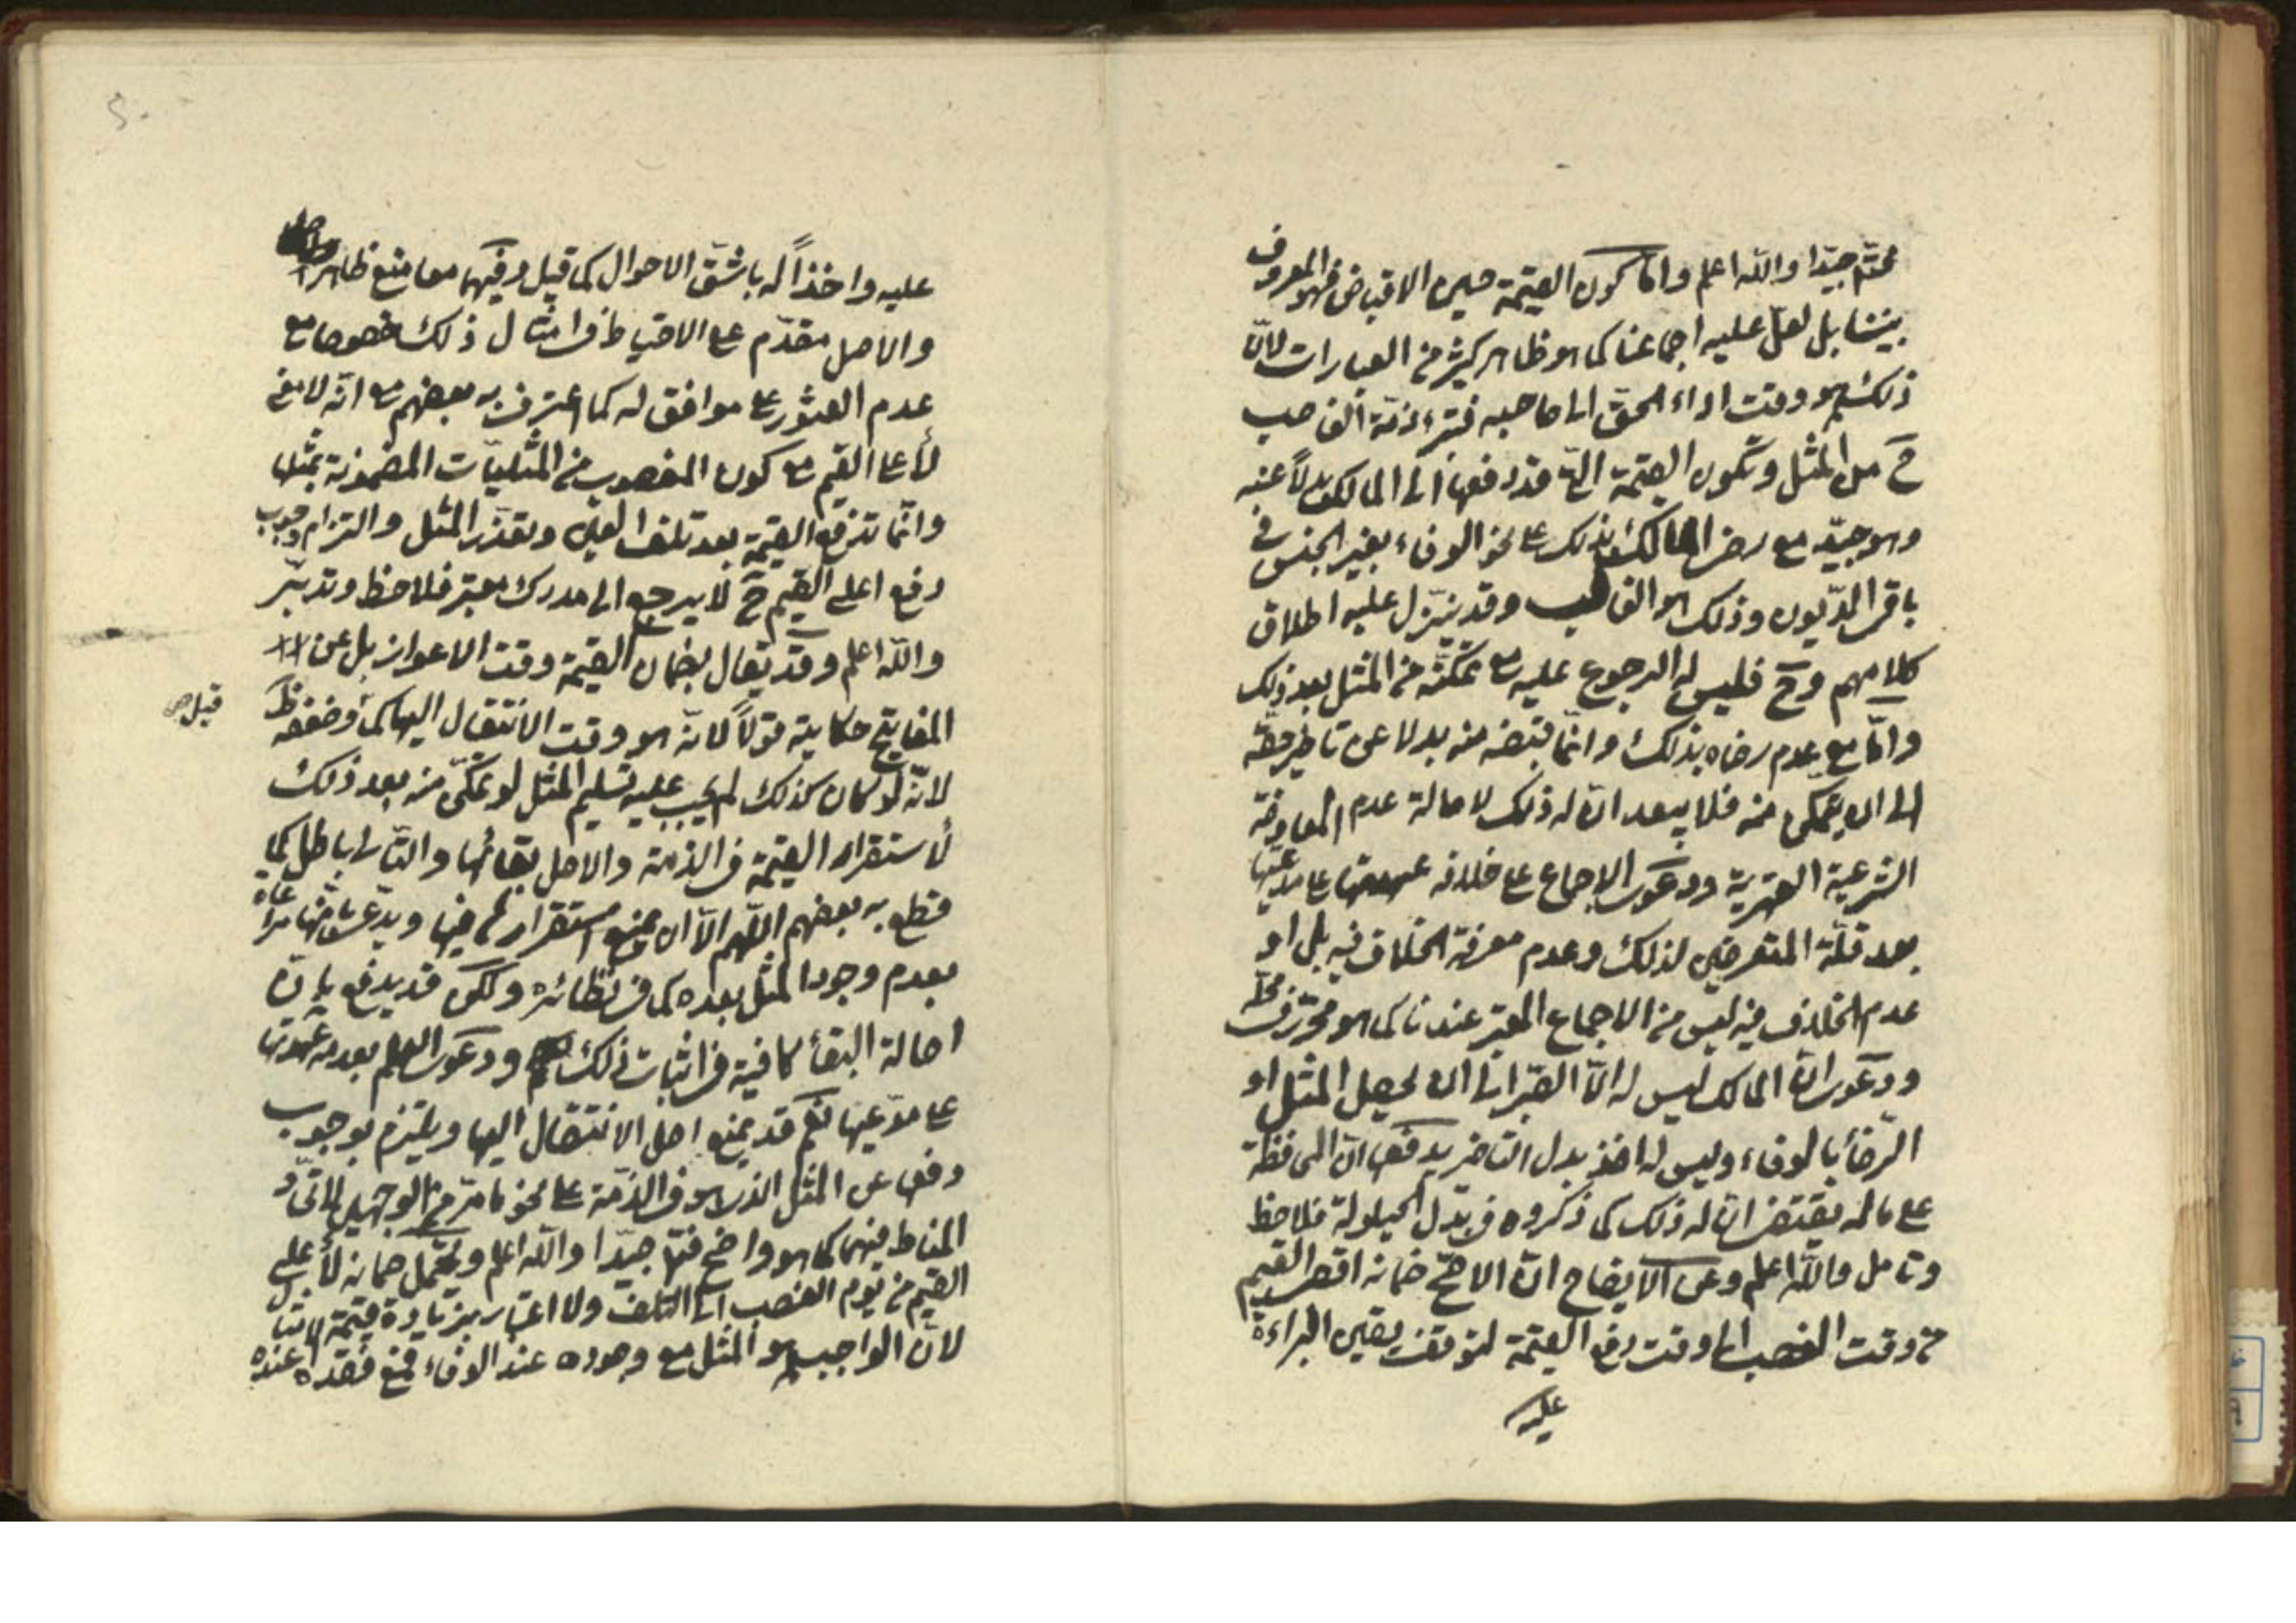 فتأمّل جيّدا والله اعلم وامّا كون القيمة حين الاقباض فهو المعروف
بيننا بل لعلّ عليه اجماعنا كما هو ظاهر كثير من العبارات لانّ
ذلك هو وقت اداء الحقّ الى صاحبه فتبرء ذمّة الغاصب
ح من المثل وتكون القيمة التي قد دفعها الى المالك بدلاً عنه
وهو جيّد مع رضا المالك بذلك على نحو الوفاء بغير الجنس في
باقي الدّيون وذلك هو الغالب وقد ينزّل عليه اطلاق
كلامهم وح فليس له الرجوع عليه مع تمكّنه من المثل بعد ذلك
وامّا مع عدم رضاه بذلك وانّما قبضه منه بدلا عن تاخير حقّه
الى ان يتمكن منه فلا يبعد انّ له ذلك لاصالة عدم المعاوضة
الشرعية القهريّة ودعوى الاجماع على خلافه عهدتها على مدّعيها
بعد قلّة المتعرضين لذلك وعدم معرفة الخلاف فيه بل او
عدم الخلاف فيه ليس من الاجماع المعتبر عندنا كما هو محرّر في محلّه
ودعوى انّ المالك ليس له الّا الصّبر الى ان يحصل المثل او
الرّضا بالوفاء وليس له اخذ بدل التاخير يدفعها انّ المحافظة
على ماله يقتضى انّ له ذلك كما ذكروه في بدل الحيلولة فلاحظ
وتامل والله اعلم وعن الايضاح انّ الاصحّ ضمانه اقصى القيم
من وقت الغصب الى وقت دفع القيمة لتوقف يقين البراءة
عليه
عليه واخذاً له باشقّ الاحوال كما قيل وفيهما معا منع ظاهر
والاصل مقدّم على الاحتياط في امثال ذلك خصوصا مع
عدم العثور على موافق له كما اعترف به بعضهم مع انّه لا معنى
لأعلا القيم مع كون المغصوب من المثليّات المضمونة بمثلها
وانّما تدفع القيمة بعد تلف العين وتعذّر المثل والتزام وجوب
دفع اعلى القيم ح لا يرجع الى مدرك معتبر فلاحظ وتدبّر
والله اعلم وقد يقال بضمان القيمة وقت الاعواز بل عن
المفاتيح حكايته قولاً لانّه هو وقت الانتقال اليها كما وضعفه ظ
قيل
لانّه لو كان كذلك لم يجب عليه تسليم المثل لو تمكّن منه بعد ذلك
لأستقرار القيمة في الذمة والاصل بقائها والتّالى باطل كما
قطع به بعضهم اللّهم الّا ان يمنع استقرارها فيها ويدّعى انّها مراعاة
بعدم وجود المثل بعده كما في نظائره ولكن قد يدفع بانّ
اصالة البقأ كافية في اثبات ذلك ودعوى العلم بعدمه عهدتها
على مدّعيها نعم قد يمنع اصل الانتقال اليها ويلتزم بوجوب
دفعها عن المثل الذي هو في الذمّة على نحو ما مرّ من الوجهين لاتّحاد
المناط فيهما كما هو واضح فتأمل جيّدا والله اعلم ويحتمل ضمانه لأعلى
القيم من يوم الغصب الى التلف ولا اعتبار بزيادة قيمة الامثال
لانّ الواجب هو المثل مع وجوده عند الوفاء فمع فقده عنده